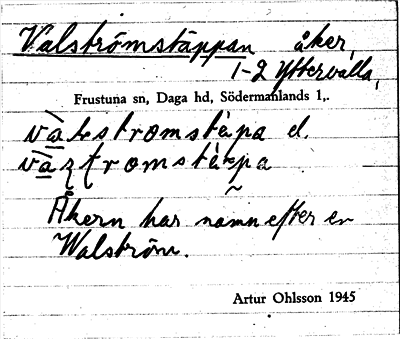 Valströmstäppan åker,
1-2 Yttervalla,
Frustuna sn, Daga hd, Södermanlands l,.
d.
Åkern har namn efter en
Walström.
Artur Ohlsson 1945